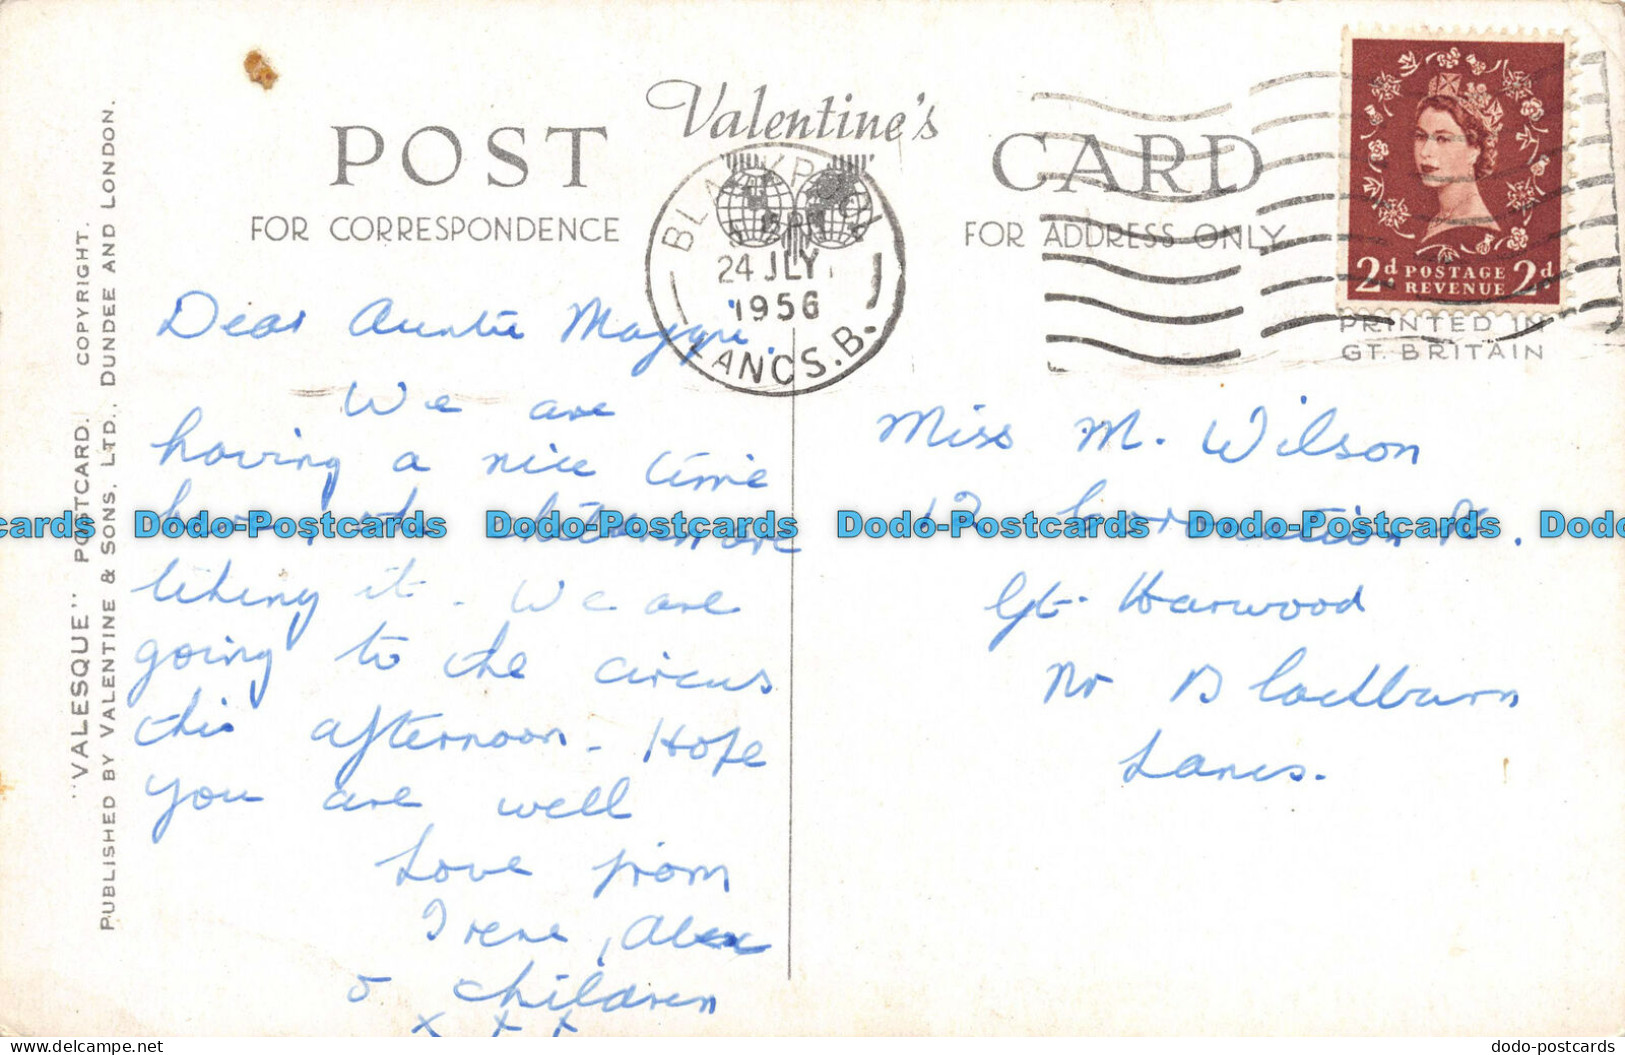 Valentine's
POST CARD
FOR CORRESPONDENCE
FOR ADDRESS ONLY
BLACKPOOL
24 JLY
1956
LANCS. B.
2d POSTAGE REVENUE 2d
PRINTED IN
GT. BRITAIN
"VALESQUE" POSTCARD. COPYRIGHT.
PUBLISHED BY VALENTINE & SONS, LTD., DUNDEE AND LONDON.
Dear Auntie Maggie.
We are
having a nice time
the
liking it. We are
going to the circus
this afternoon. Hope
you are well
Love from
Irene, Alex
& children
x x x
Miss M. Wilson
12 Coronation St.
Gt. Harwood
Nr Blackburn
Lancs.
Dodo-Postcards Dodo-Postcards Dodo-Postcards Dodo-Postcards
dodo-postcards